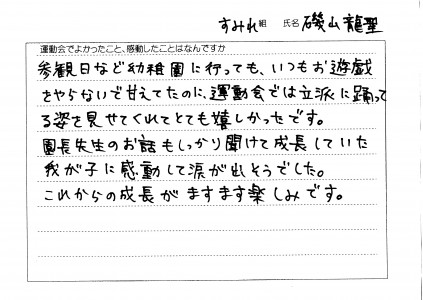 すみれ組 氏名 磯山龍聖
運動会でよかったこと、感動したことはなんですか
参観日など幼稚園に行っても、いつもお遊戯
をやらないで甘えてたのに、運動会では立派に踊って
る姿を見せてくれてとても嬉しかったです。
園長先生のお話もしっかり聞けて成長していた
我が子に感動して涙が出そうでした。
これからの成長がますます楽しみです。